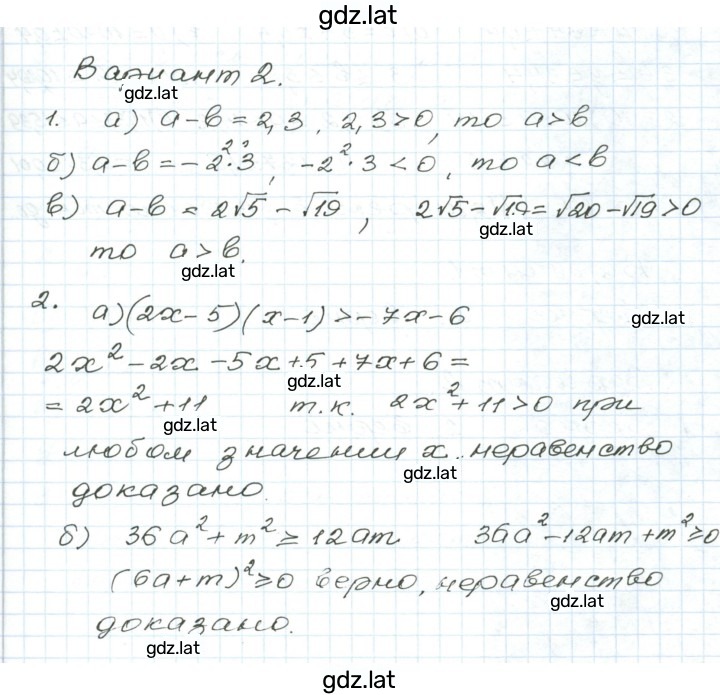 gdz.lat
Вариант 2.
gdz.lat
1. а) a-b = 2,3, 2,3>0, то a>b
б) a-b = -2²·3³, -2²·3<0, то a<b
в) a-b = 2√5 - √19, 2√5 - √19 = √20 - √19 > 0
gdz.lat
то a>b.
gdz.lat
2. а) (2x-5)(x-1) > -7x-6
gdz.lat
2x² - 2x - 5x + 5 + 7x + 6 =
gdz.lat
= 2x² + 11 т.к. 2x² + 11 > 0 при
gdz.lat
любом значении x неравенство
gdz.lat
доказано.
б) 36a² + m² ≥ 12am 36a² - 12am + m² ≥ 0
(6a+m)² ≥ 0 верно, неравенство
gdz.lat
доказано.
gdz.lat
gdz.lat